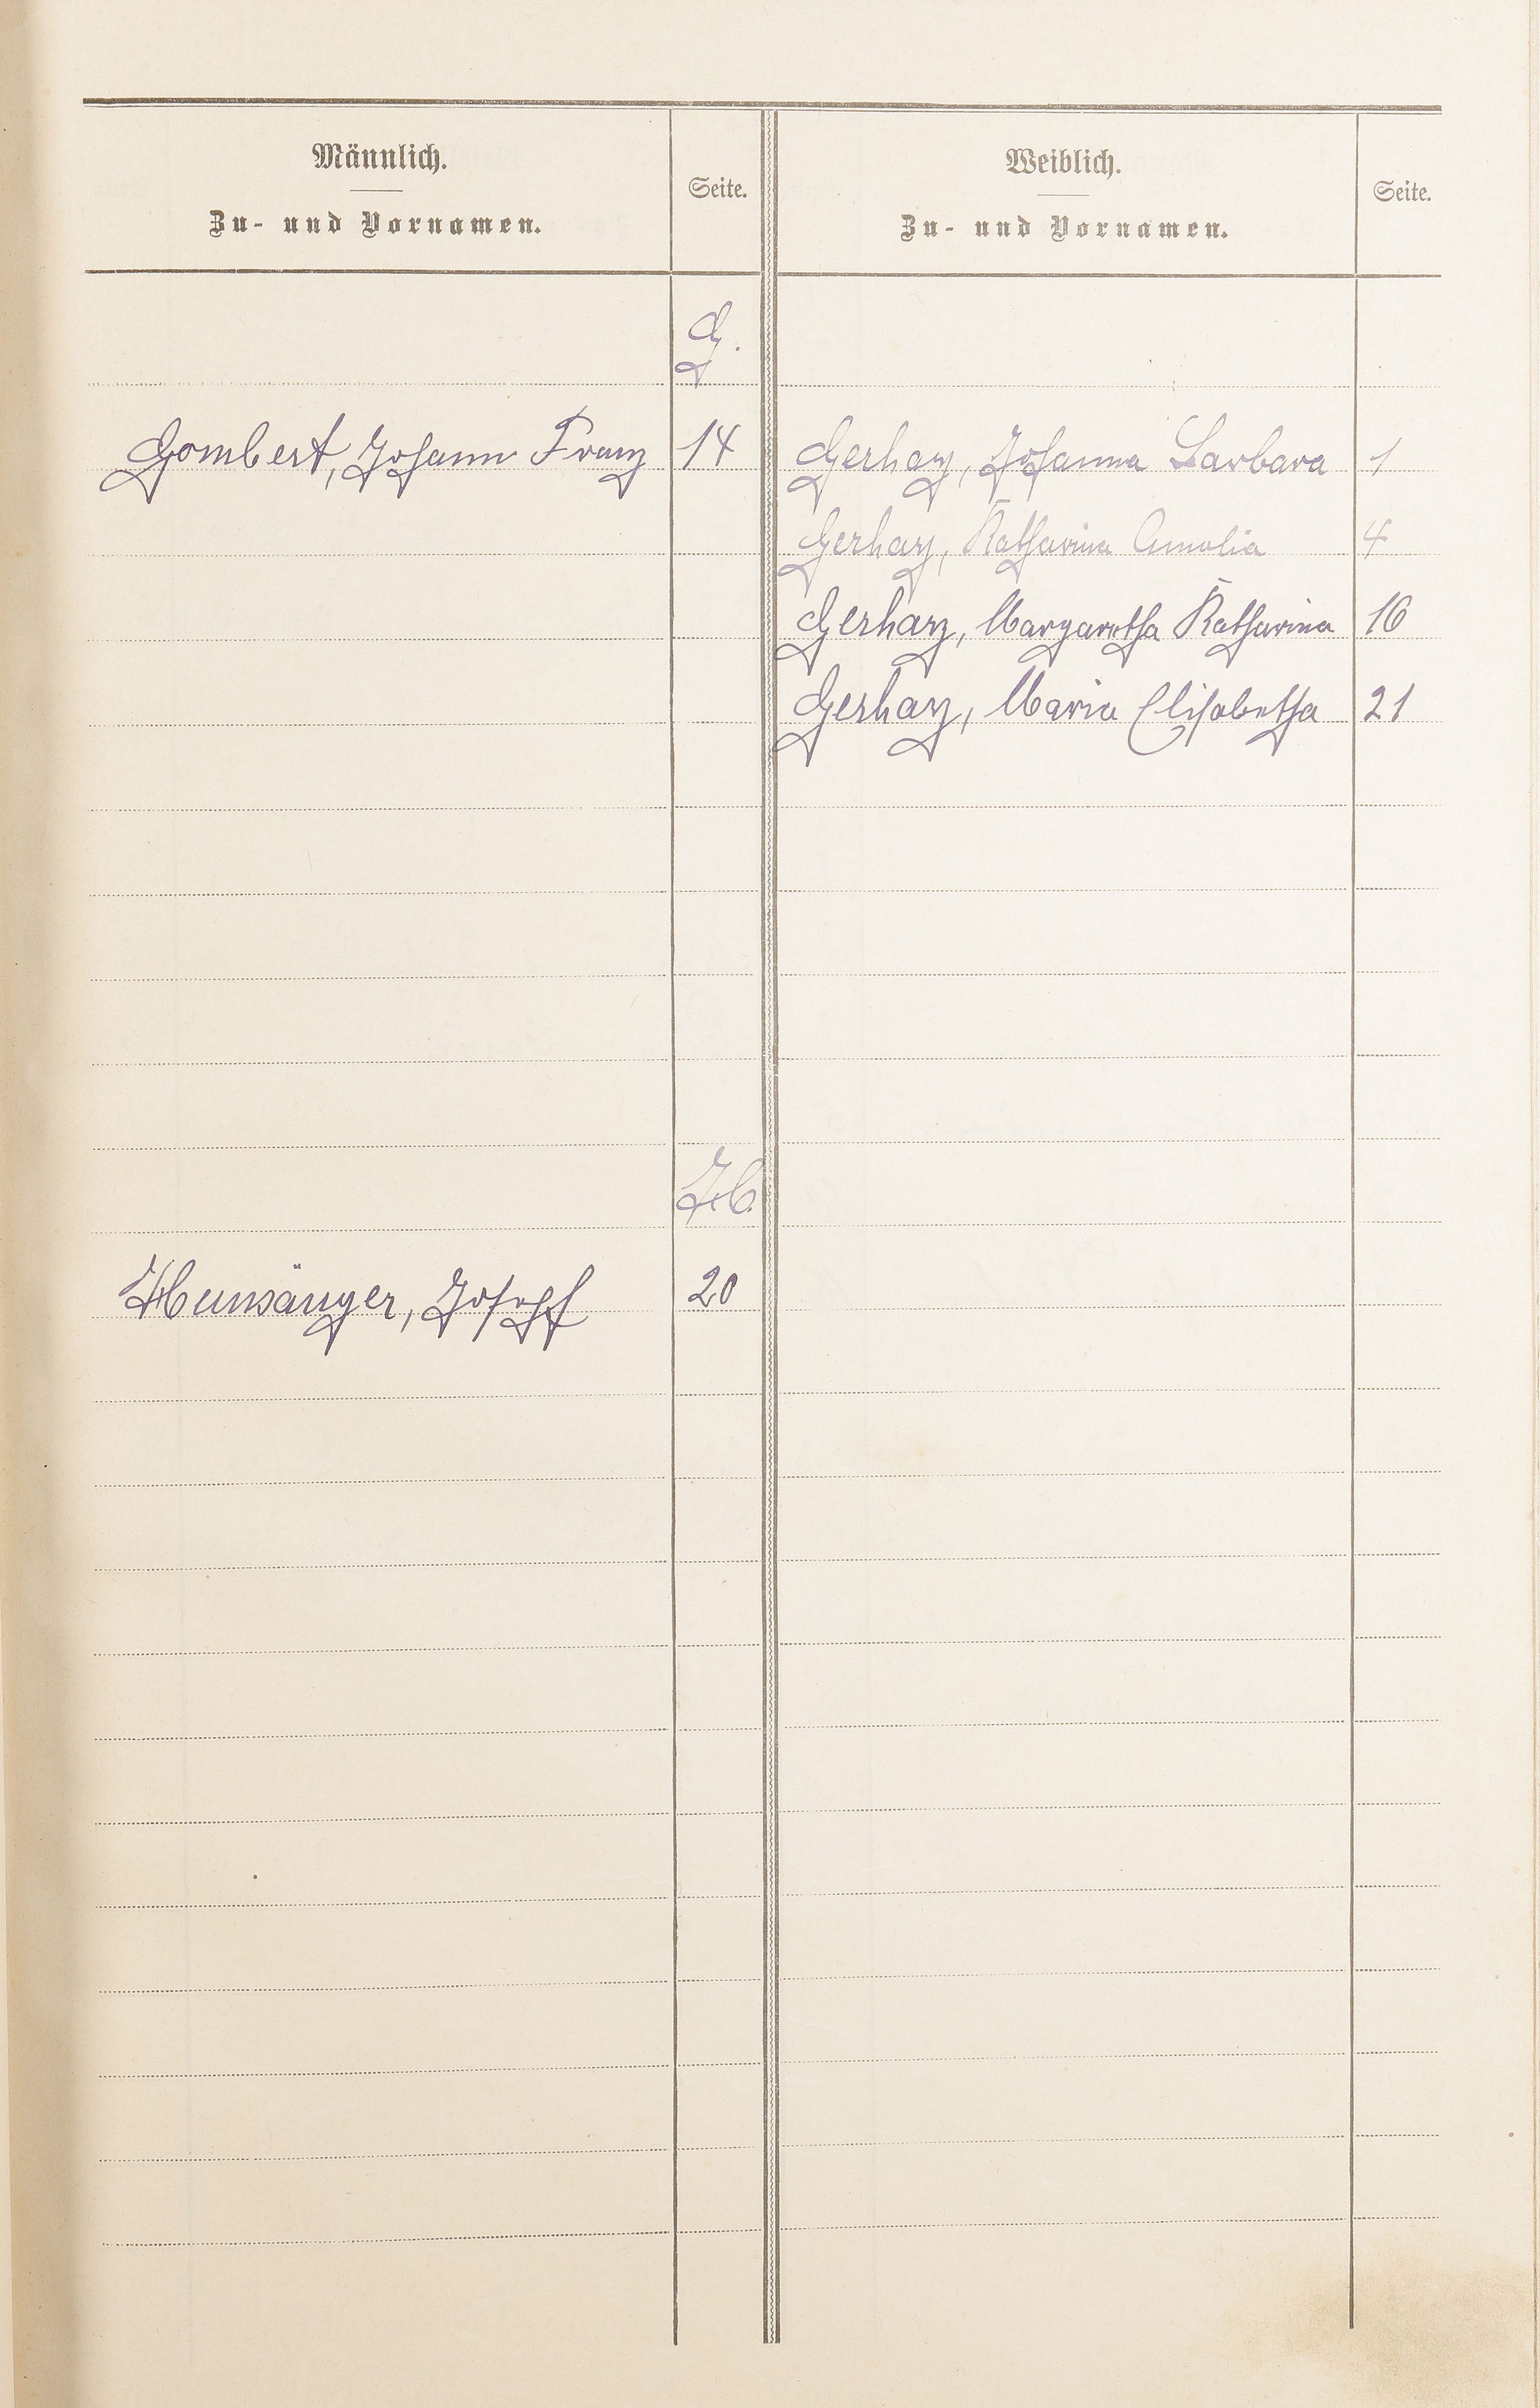 Männlich.
Zu- und Vornamen.
Seite.
Weiblich.
Zu- und Vornamen.
Seite.
G.
Gombert, Johann Franz 14
Gerharz, Johanna Barbara 1
Gerharz, Katharina Amalia 4
Gerharz, Margaretha Katharina 16
Gerharz, Maria Elisabetha 21
H.
Hünsänger, Joseph 20